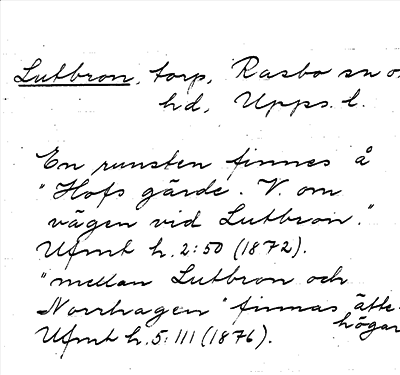 Lutbron, torp, Rasbo sn o
hd, Upps. l.
En runsten finnes å
"Hofs gärde. V. om
vägen vid Lutbron."
Ufmt h. 2:50 (1872).
"mellan Lutbron och
Norrhagen" finnas ätte-
högar
Ufmt h. 5:111 (1876).